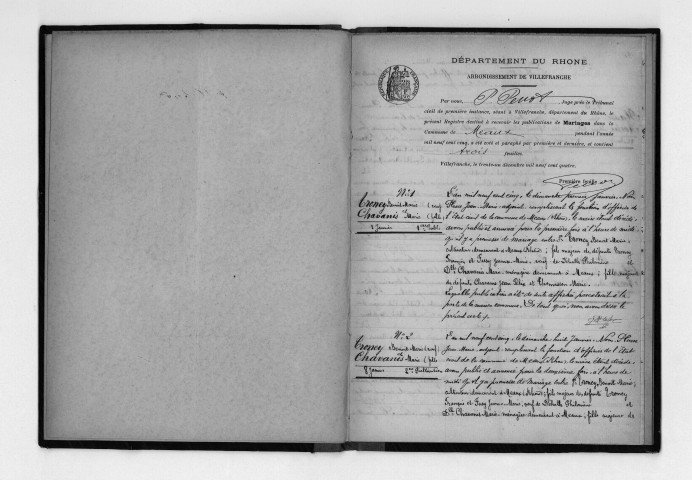 DÉPARTEMENT DU RHONE
ARRONDISSEMENT DE VILLEFRANCHE
Par nous, P. Juge près le Tribunal
civil de première instance, séant à Villefranche, département du Rhône, le
présent Registre destiné à recevoir les publications de Mariages dans la
Commune de Meaux pendant l'année
mil neuf cent cinq, a été coté et paraphé par première et dernière, et contient
trois feuilles.
Villefranche, le trente-un décembre mil neuf cent quatre.
Première feuille
N° 1
Troncy Benoit-Marie (veuf)
Chavanis Marie (fille)
1 Janvier 1ère Publ.
L'an mil neuf cent cinq, le dimanche premier janvier, Nous
Jean Marie, adjoint, remplissant la fonction d'officier de
l'état civil de la commune de Meaux (Rhône), le maire étant décédé,
avons publié et annoncé pour la première fois à l'heure de midi
qu'il y a promesse de mariage entre Sr Troncy Benoit Marie,
cultivateur demeurant à Meaux (Rhône); fils majeur de défunts Troncy
François et Jeanne-Marie; veuf de Philomène et
Dlle Chavanis Marie, ménagère demeurant à Meaux; fille majeure
de défunt Chavanis Jean et Marie.
Laquelle publication a été de suite affichée
porte de la maison commune. De tout quoi nous avons dressé le
présent acte.
N° 2
Troncy Benoit-Marie (veuf)
Chavanis Marie (fille)
8 Janvier 2me Publication
L'an mil neuf cent cinq, le dimanche huit janvier, Nous
Jean Marie, adjoint, remplissant la fonction d'officier de l'état
civil de la commune de Meaux, Rhône, le maire étant décédé,
avons publié et annoncé pour la deuxième fois, à l'heure de
midi qu'il y a promesse de mariage entre Sr Troncy Benoit Marie,
cultivateur demeurant à Meaux (Rhône); fils majeur de défunts Troncy
François et Jeanne Marie; veuf de Philomène et
Dlle Chavanis Marie, ménagère demeurant à Meaux; fille majeure de